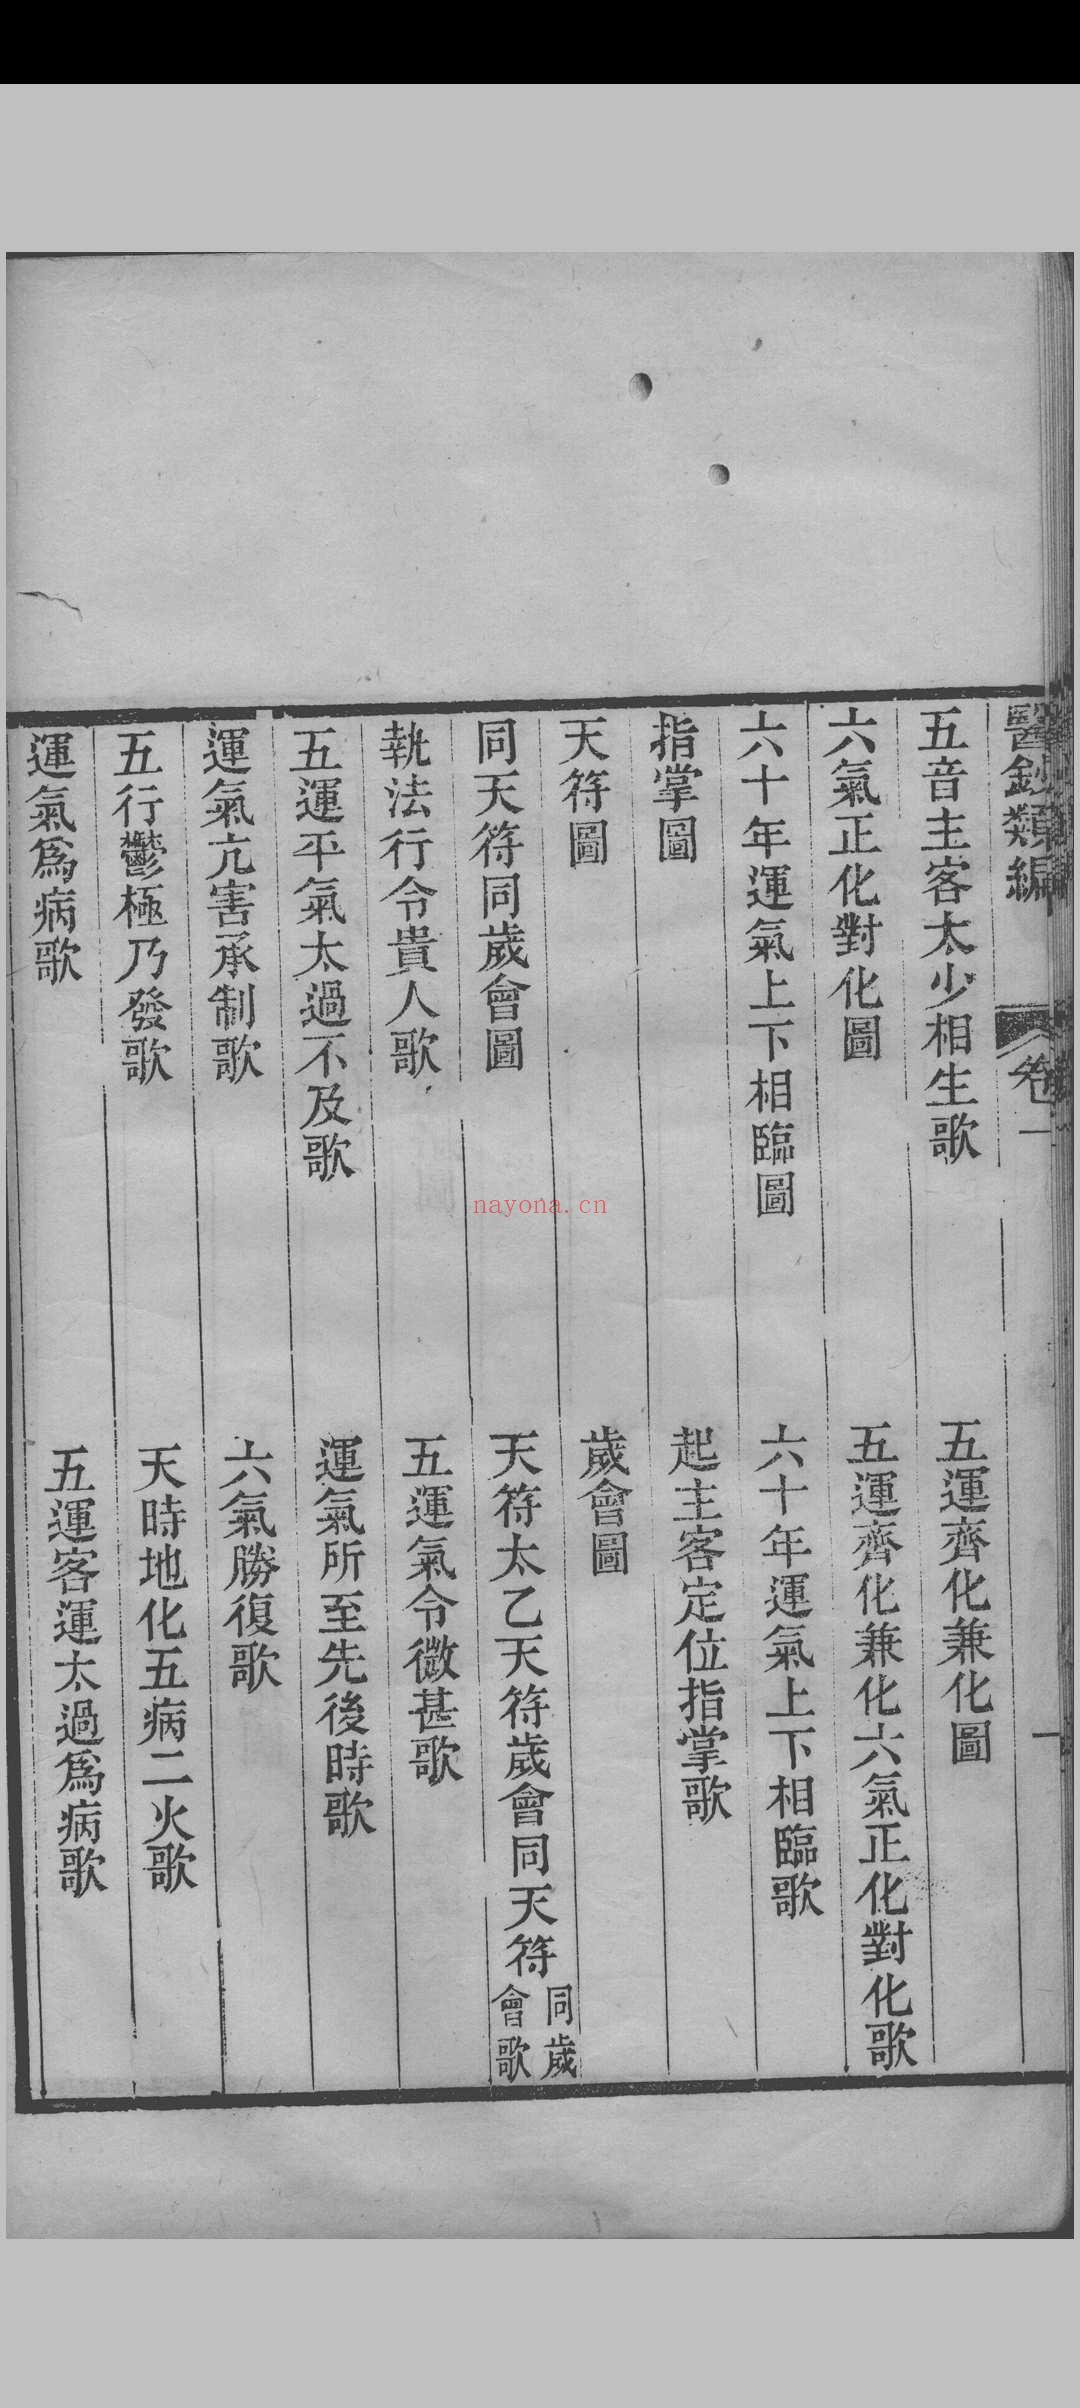 醫鈔類編
卷一
一
五音主客太少相生歌
五運齊化兼化圖
六氣正化對化圖
五運齊化兼化六氣正化對化歌
六十年運氣上下相臨圖
六十年運氣上下相臨歌
指掌圖
起主客定位指掌歌
天符圖
歲會圖
同天符同歲會圖
天符太乙天符歲會同天符同歲會歌
執法行令貴人歌
五運氣令微甚歌
五運平氣太過不及歌
運氣所至先後時歌
運氣亢害承制歌
六氣勝復歌
五行鬱極乃發歌
天時地化五病二火歌
運氣爲病歌
五運客運太過爲病歌
nayona.cn